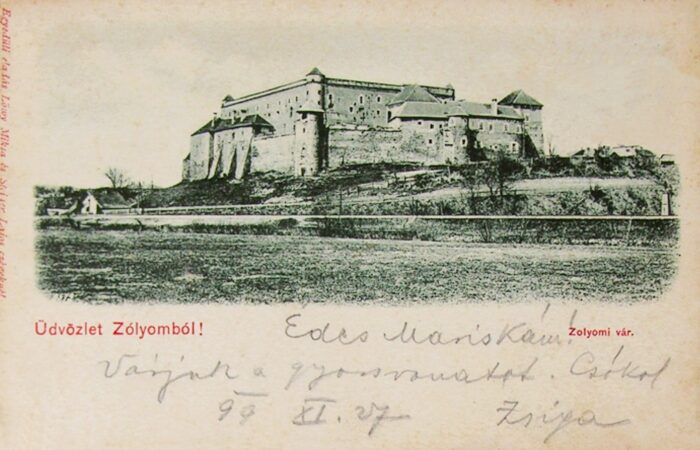 Egyedüli eladás Löwy Miksa és
Üdvözlet Zólyomból!
Zolyomi vár.
Édes Mariskám!
Várjuk a gyorsvonatot. Csókol
99 XI. 27 Zsiga